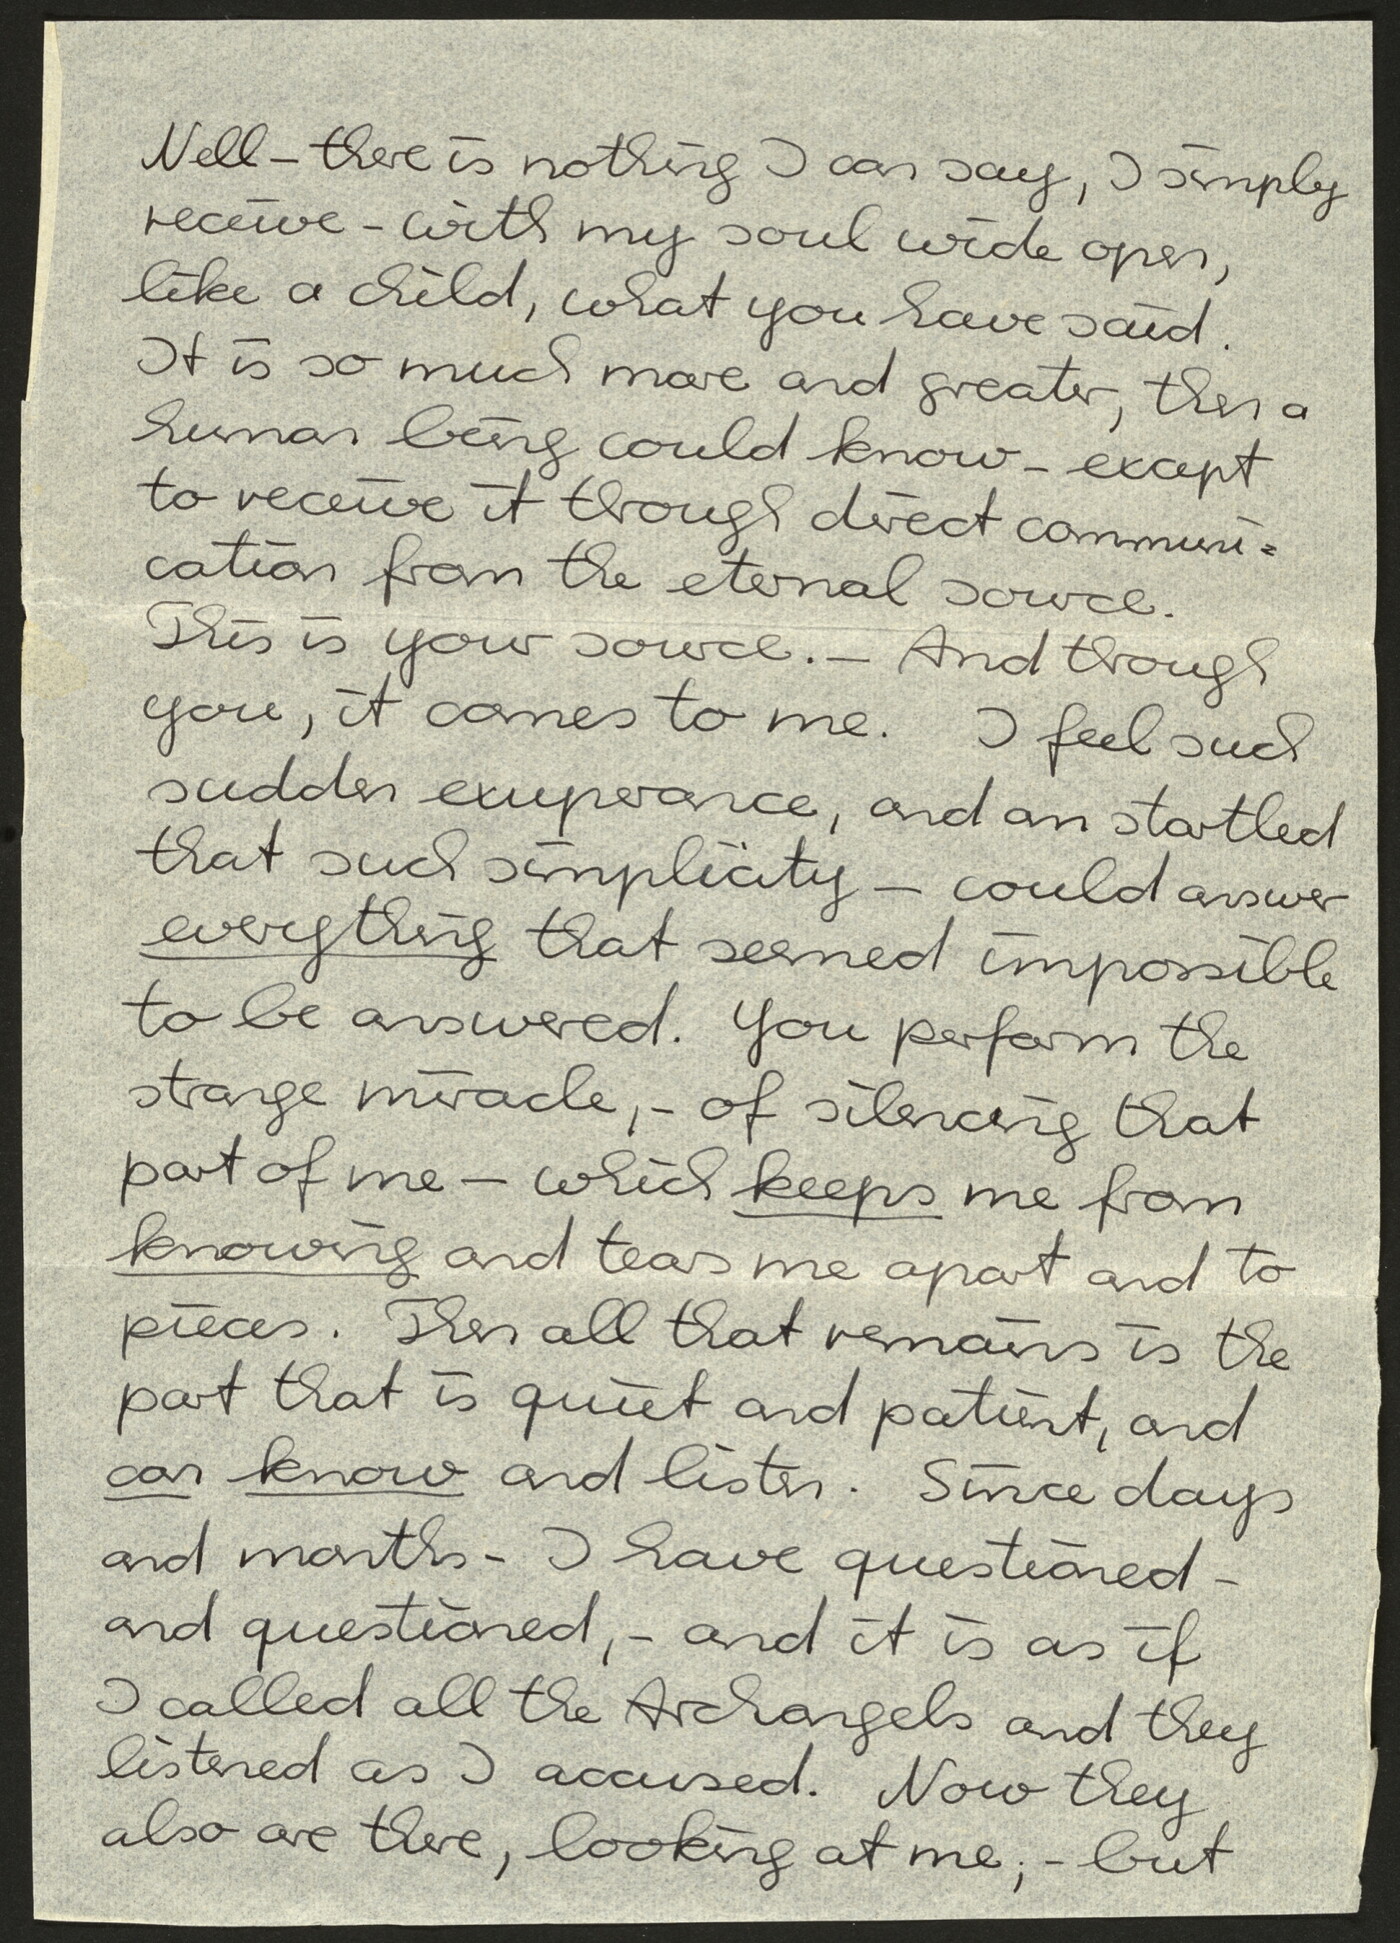 Nell – there is nothing I can say, I simply
receive – with my soul wide open,
like a child, what you have said.
It is so much more and greater, then a
human being could know – except
to receive it through direct communi=
cation from the eternal source.
This is your source. – And through
you, it comes to me. I feel such
sudden exuperance, and am startled
that such simplicity – could answer
everything that seemed impossible
to be answered. You perform the
strange miracle, – of silencing that
part of me – which keeps me from
knowing and tears me apart and to
pieces. Then all that remains is the
part that is quiet and patient, and
can know and listen. Since days
and months – I have questioned –
and questioned, – and it is as if
I called all the Archangels and they
listened as I accused. Now they
also are there, looking at me; – but